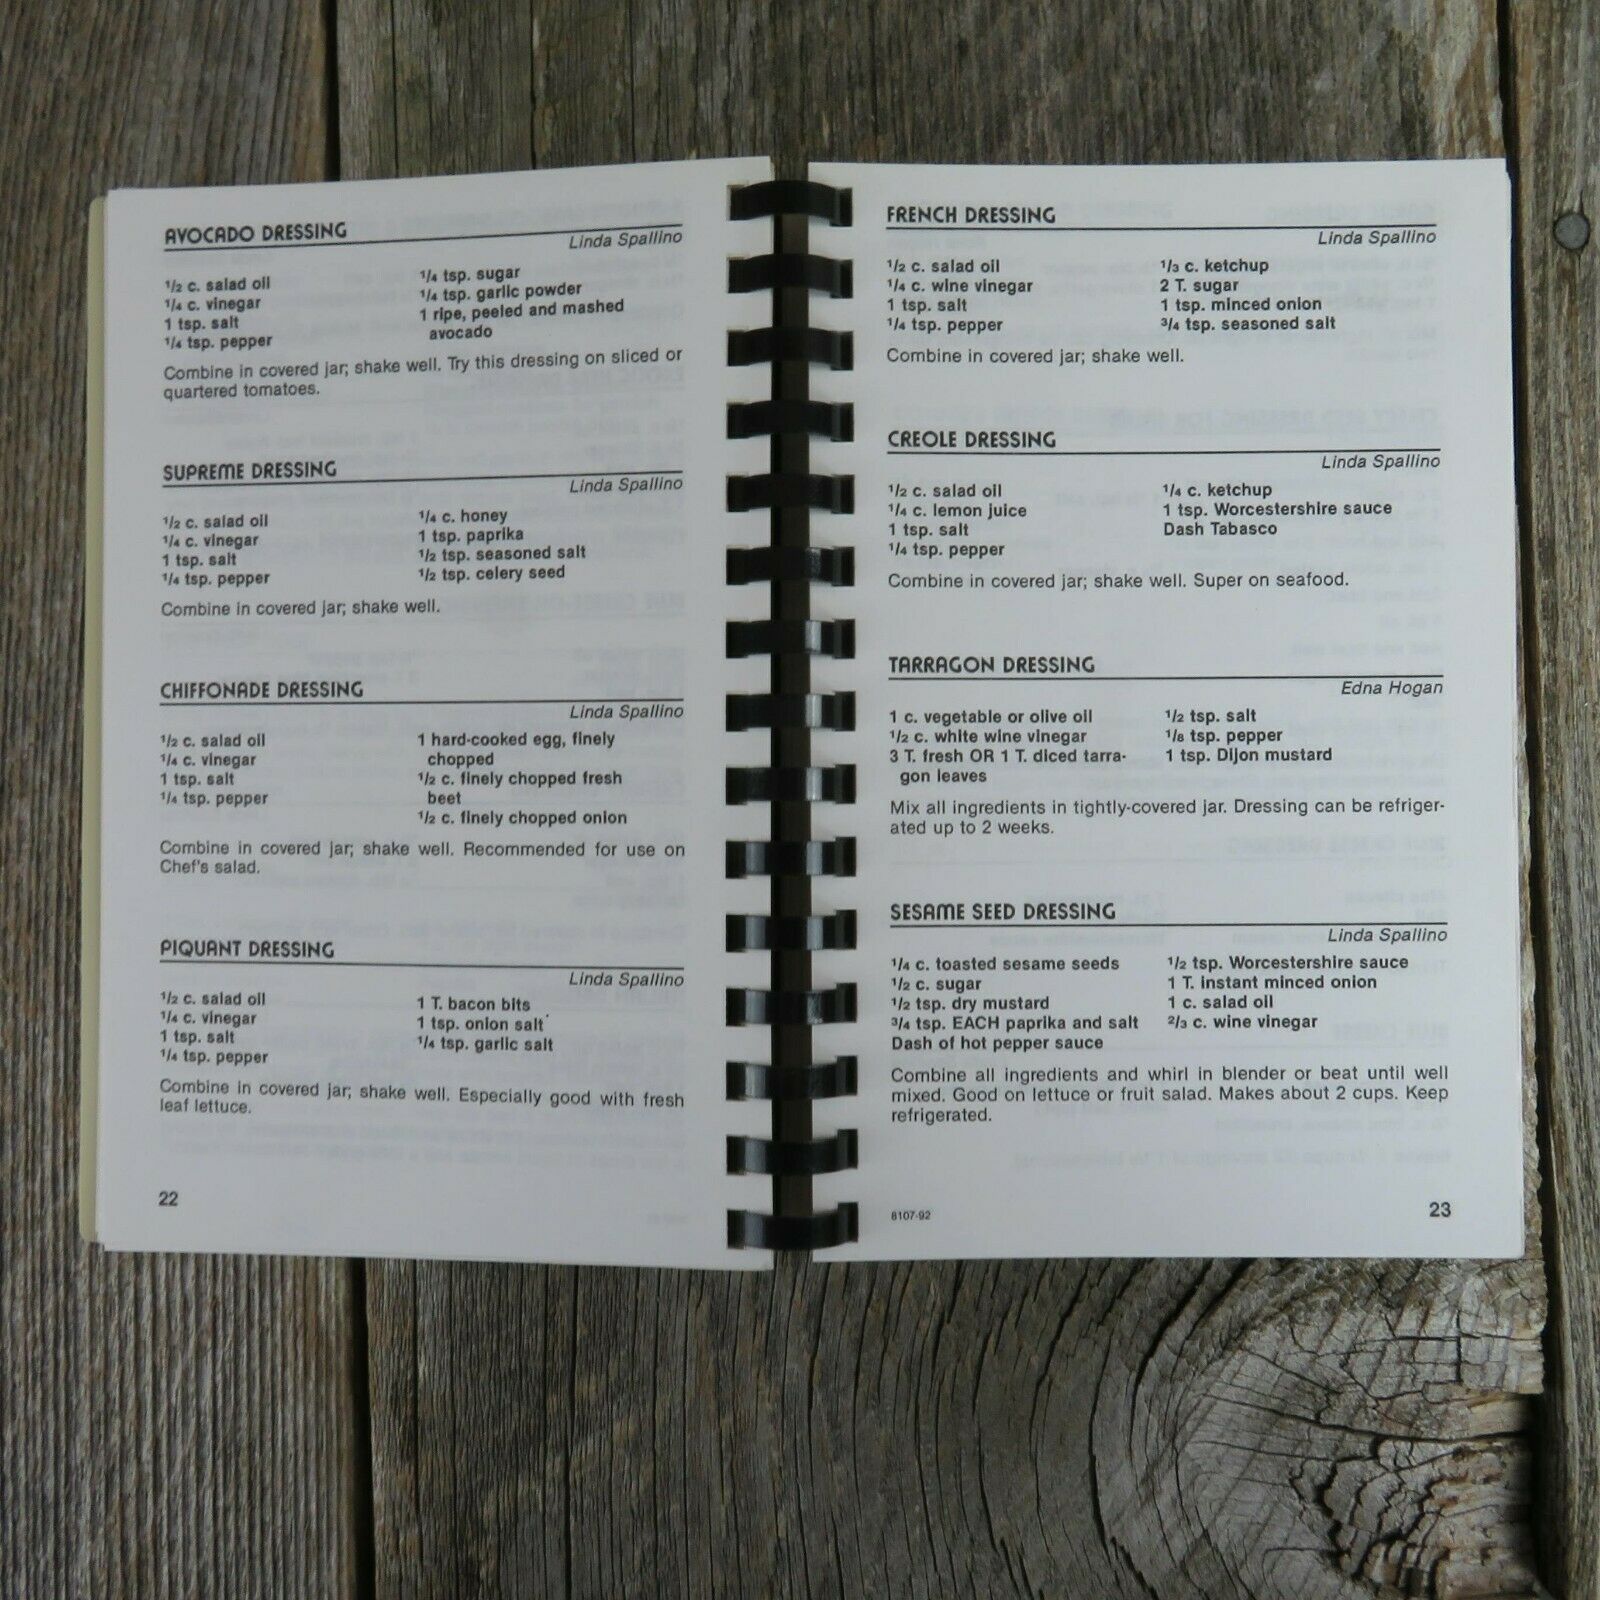 AVOCADO DRESSING
Linda Spallino
1/2 c. salad oil
1/4 c. vinegar
1 tsp. salt
1/4 tsp. pepper
1/4 tsp. sugar
1/4 tsp. garlic powder
1 ripe, peeled and mashed
avocado
Combine in covered jar; shake well. Try this dressing on sliced or
quartered tomatoes.
SUPREME DRESSING
Linda Spallino
1/2 c. salad oil
1/4 c. vinegar
1 tsp. salt
1/4 tsp. pepper
1/4 c. honey
1 tsp. paprika
1/2 tsp. seasoned salt
1/2 tsp. celery seed
Combine in covered jar; shake well.
CHIFFONADE DRESSING
Linda Spallino
1/2 c. salad oil
1/4 c. vinegar
1 tsp. salt
1/4 tsp. pepper
1 hard-cooked egg, finely
chopped
1/2 c. finely chopped fresh
beet
1/2 c. finely chopped onion
Combine in covered jar; shake well. Recommended for use on
Chef's salad.
PIQUANT DRESSING
Linda Spallino
1/2 c. salad oil
1/4 c. vinegar
1 tsp. salt
1/4 tsp. pepper
1 T. bacon bits
1 tsp. onion salt
1/4 tsp. garlic salt
Combine in covered jar; shake well. Especially good with fresh
leaf lettuce.
22
FRENCH DRESSING
Linda Spallino
1/2 c. salad oil
1/4 c. wine vinegar
1 tsp. salt
1/4 tsp. pepper
1/3 c. ketchup
2 T. sugar
1 tsp. minced onion
3/4 tsp. seasoned salt
Combine in covered jar; shake well.
CREOLE DRESSING
Linda Spallino
1/2 c. salad oil
1/4 c. lemon juice
1 tsp. salt
1/4 tsp. pepper
1/4 c. ketchup
1 tsp. Worcestershire sauce
Dash Tabasco
Combine in covered jar; shake well. Super on seafood.
TARRAGON DRESSING
Edna Hogan
1 c. vegetable or olive oil
1/2 c. white wine vinegar
3 T. fresh OR 1 T. diced tarra-
gon leaves
1/2 tsp. salt
1/8 tsp. pepper
1 tsp. Dijon mustard
Mix all ingredients in tightly-covered jar. Dressing can be refriger-
ated up to 2 weeks.
SESAME SEED DRESSING
Linda Spallino
1/4 c. toasted sesame seeds
1/2 c. sugar
1/2 tsp. dry mustard
3/4 tsp. EACH paprika and salt
Dash of hot pepper sauce
1/2 tsp. Worcestershire sauce
1 T. instant minced onion
1 c. salad oil
2/3 c. wine vinegar
Combine all ingredients and whirl in blender or beat until well
mixed. Good on lettuce or fruit salad. Makes about 2 cups. Keep
refrigerated.
8107-92
23